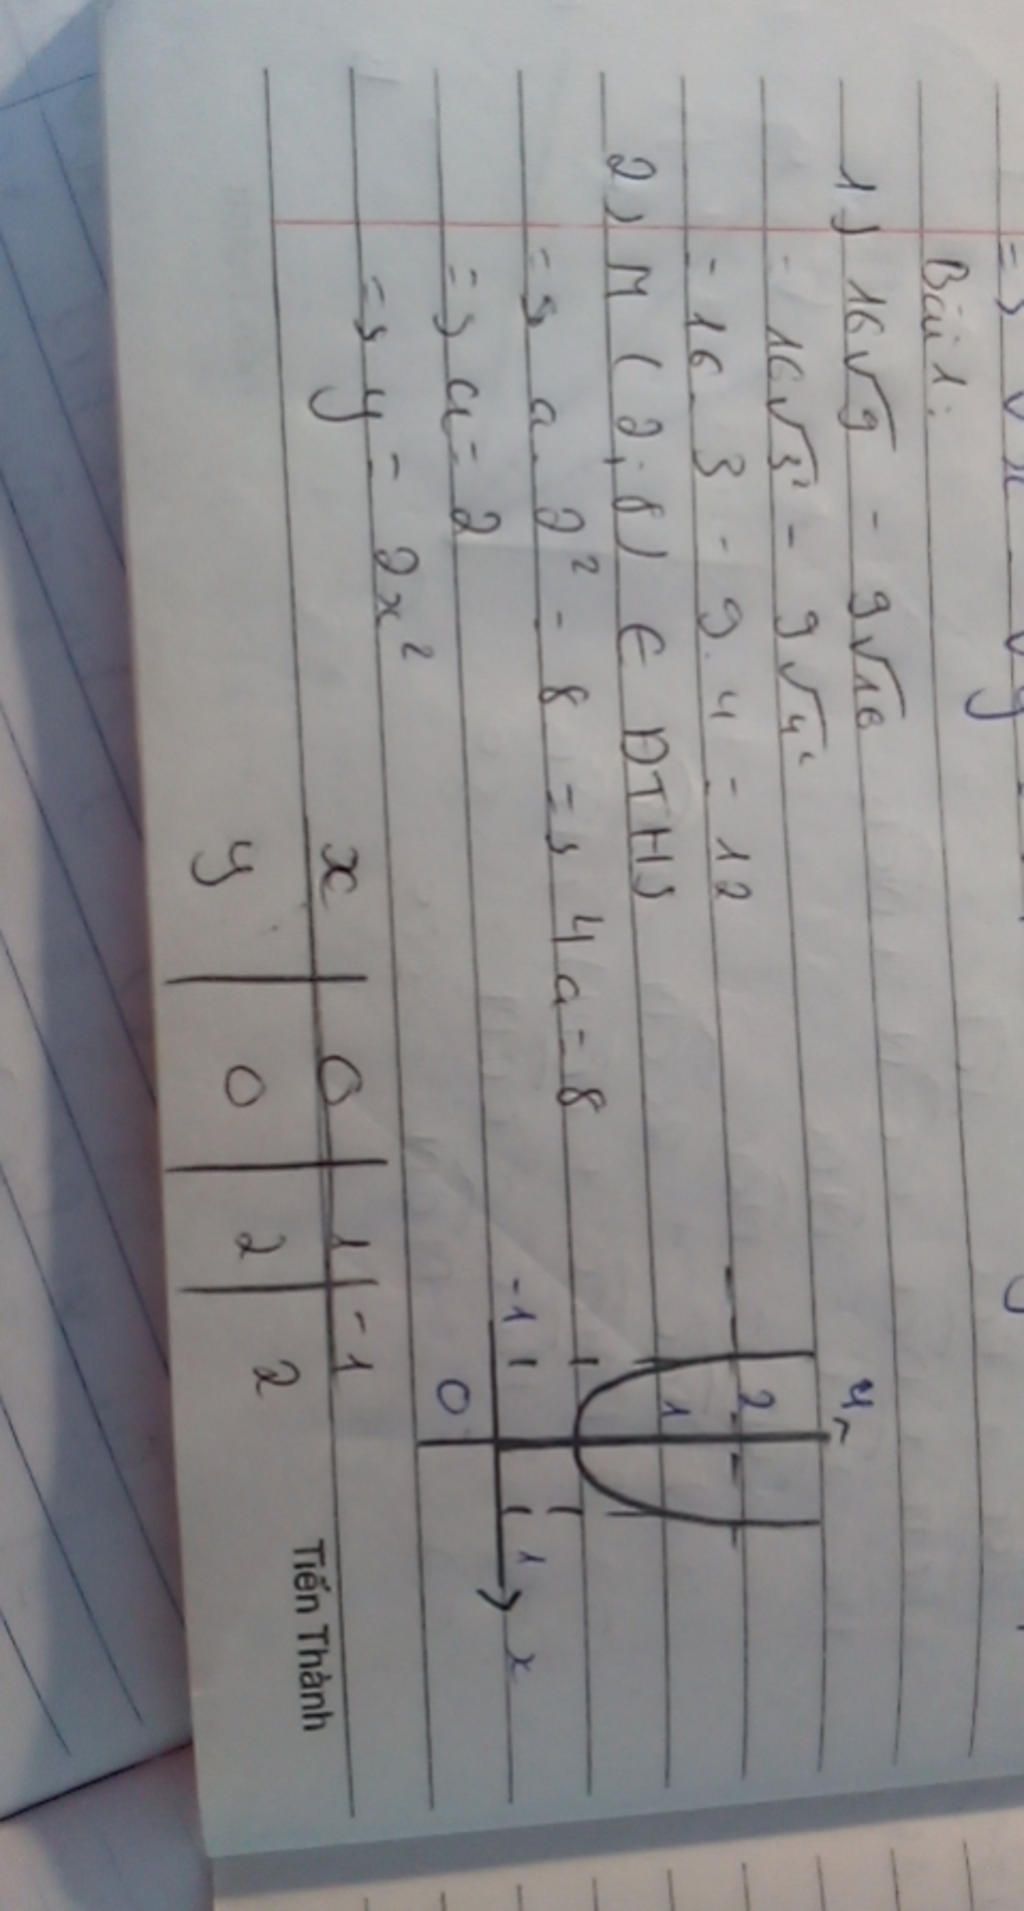 Bài 1:
1) 16√9 - 9√16
= 16√3² - 9√4²
= 16.3 - 9.4 = 12
2) M (2; 8) ∈ ĐTHS
=> a.2² = 8 => 4a = 8
=> a = 2
=> y = 2x²
x | 0 | 1 | -1
y | 0 | 2 | 2
y
2
1
-1 1 x
0
Tiến Thành